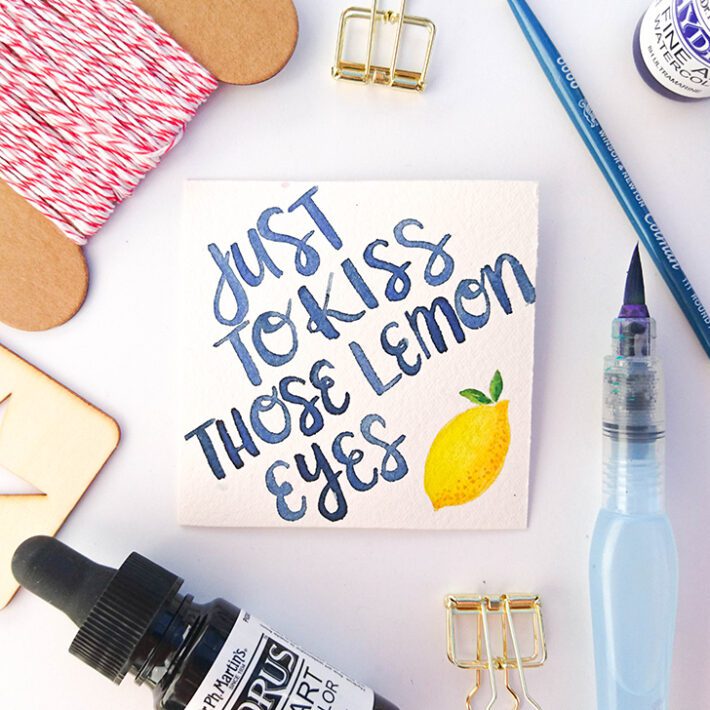 JUST
TO KISS
THOSE LEMON
EYES
WINSOR & NEWTON
Cotman
FINE A
WATERCOLO
ULTRAMARINE
Ph. Martin's
DRUS
ART
LOR